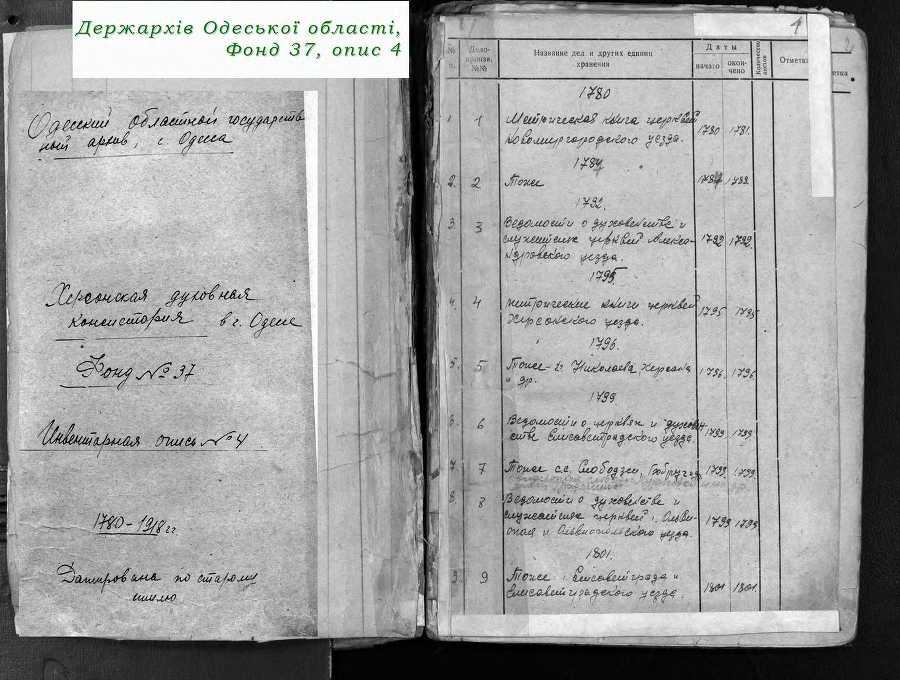 Держархів Одеської області,
Фонд 37, опис 4
Одесский областной государствен
ный архив, г. Одесса
Херсонская духовная
консистория в г. Одессе
Фонд № 37
Инвентарная опись № 4
1780-1918 гг
Датирована по старому
стилю
1
2
№ п. Дело-произв. №№ Название дел и других единиц хранения Даты начато окончено Количество листов Отметка
1780
1 1 Метрическая книга церквей 1780 1781.
Новомиргородского уезда.
1787
2. 2 Тоже 1787 1788
1792.
3. 3 Ведомости о духовенстве и
служителях церквей Алекса- 1792 1792
ндровского уезда.
1795.
4. 4 метрические книги церквей 1795 1795
Херсонского уезда.
1796.
5. 5 Тоже г. Николаева Херсона 1796 1796
и др.
1799
6 Ведомости о церквях и духовен
стве Елисаветградского уезда 1799 1799
7. 7 Тоже с.с. Слободзеи, 1799 1799
8 8 Ведомости о духовенстве и
служителях церквей г. Ольви- 1799 1799
ополя и Ольвиопольского уезда.
1801.
9. 9 Тоже г. Елисаветграда и 1801 1801.
Елисаветградского уезда.